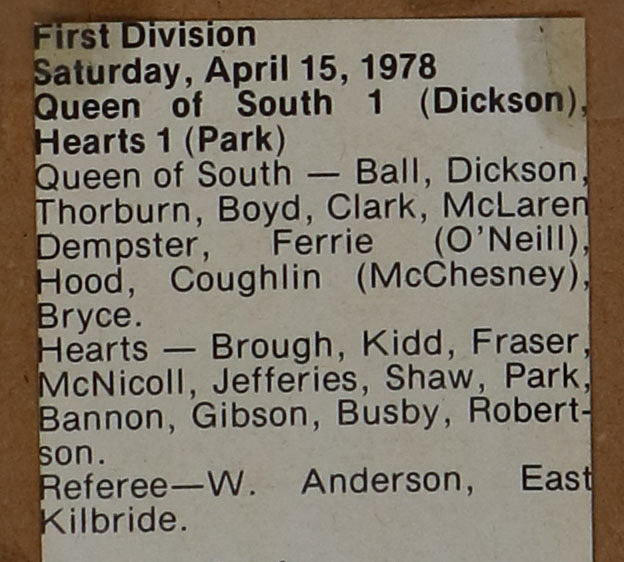 First Division
Saturday, April 15, 1978
Queen of South 1 (Dickson),
Hearts 1 (Park)
Queen of South — Ball, Dickson,
Thorburn, Boyd, Clark, McLaren
Dempster, Ferrie (O'Neill),
Hood, Coughlin (McChesney),
Bryce.
Hearts — Brough, Kidd, Fraser,
McNicoll, Jefferies, Shaw, Park,
Bannon, Gibson, Busby, Robert-
son.
Referee—W. Anderson, East
Kilbride.